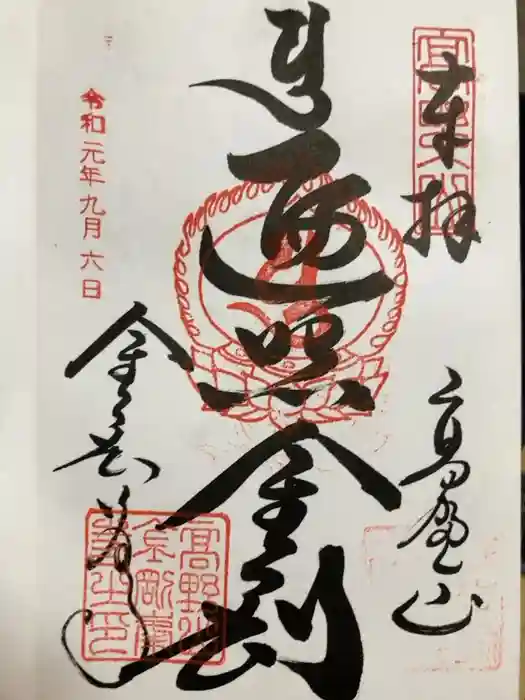 奉拝
高野山
遍照金剛
金剛峯寺
令和元年九月六日
高野山
金剛峯
寺之印